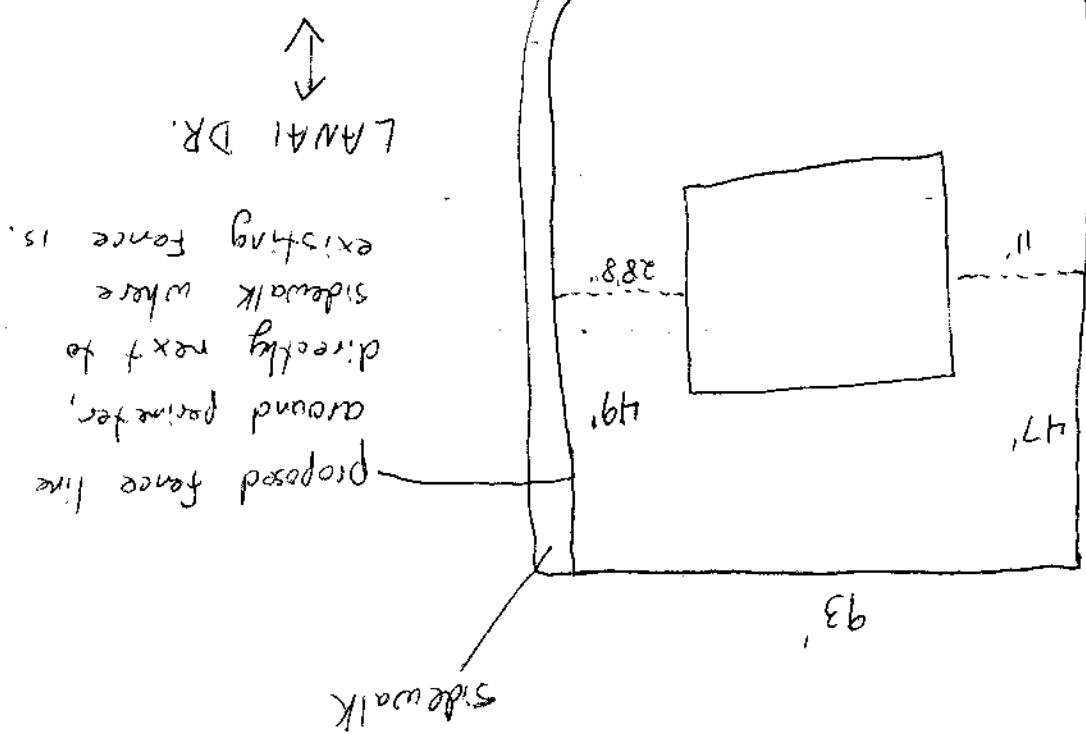 sidewalk
93'
47'
49'
proposed fence line
around perimeter,
directly next to
sidewalk where
existing fence is.
11'
28'8"
LANAI DR.